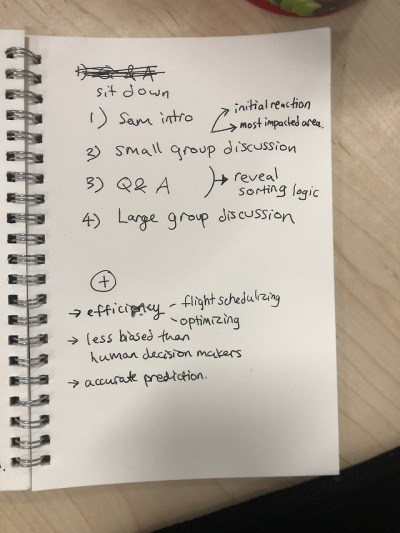 1) Q & A
sit down
1) Sam intro
initial reaction
most impacted area.
2) small group discussion
3) Q & A
reveal
sorting logic
4) Large group discussion
+
→ efficiency - flight schedulizing
- optimizing
→ less biased than
human decision makers
→ accurate prediction.